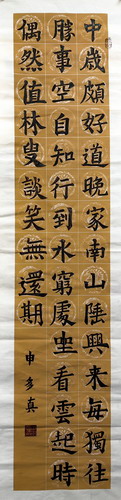 中歳頗好道晚家南山陲興來每獨往
勝事空自知行到水窮處坐看雲起時
偶然值林叟談笑無還期
申多真